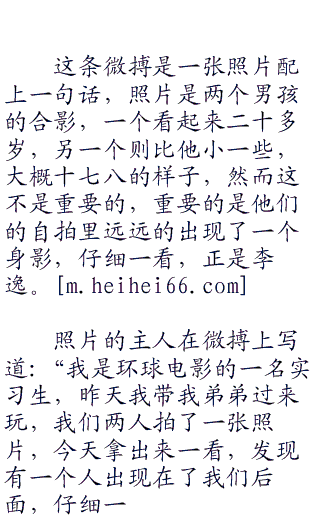 这条微搏是一张照片配
上一句话，照片是两个男孩
的合影，一个看起来二十多
岁，另一个则比他小一些，
大概十七八的样子，然而这
不是重要的，重要的是他们
的自拍里远远的出现了一个
身影，仔细一看，正是李
逸。[m.heihei66.com]
照片的主人在微搏上写
道：“我是环球电影的一名实
习生，昨天我带我弟弟过来
玩，我们两人拍了一张照
片，今天拿出来一看，发现
有一个人出现在了我们后
面，仔细一